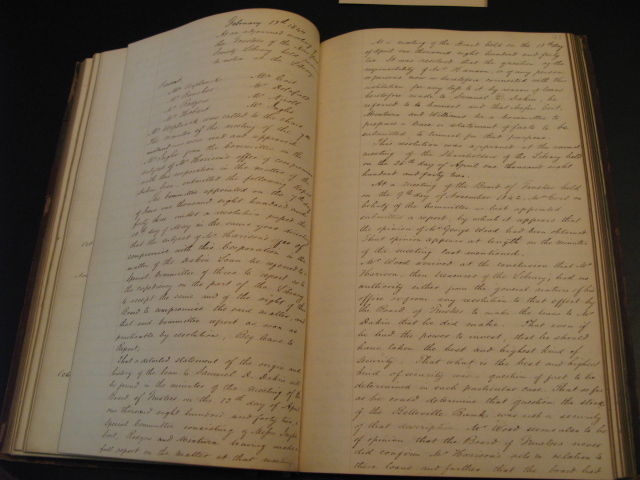 February 13th 1844
At an adjourned meeting of
the Trustees of the New York
Society Library held
Present
Mr Verplanck
Mr Rodgers
Mr Verplanck was called to the chair
The minutes of the meeting of the
were read and approved
Mr from the Committee on the
subject of Mr Harison's offer of compromise
with the corporation in the matter of the
Dakin loan, submitted the following report
The Committee appointed on the 9th day
of June one thousand eight hundred and
forty three under a resolution
day of in the same year
that the subject of Mr Harison's
compromise with this Corporation in the
matter of the Dakin Loan be referred to a
Special Committee of three to report as to
the expediency on the part of the Library
to accept the same and of the right of the
Board to compromise the said matter, and
that said committee report as soon as
practicable by resolution, Beg leave to
Report.
That a detailed statement of the origin and
history of the loan to Samuel D. Dakin will
be found in the minutes of the meeting of the
Board of Trustees on the 12th day of April
one thousand eight hundred and forty two, a
Special Committee consisting of
Rodgers and having made a
full report on the matter at that meeting
At a meeting of the Board held on the 18th day
of April one thousand eight hundred and forty
two. It was resolved that the question of the
responsibility of Mr Harison, or of any person
or persons now or heretofore connected with this
institution for any loss to it by reason of loans
heretofore made to Samuel D. Dakin, be
referred to to Counsel and that
be a Committee to
prepare a Case or statement of facts to be
submitted to Counsel for that purpose.
This resolution was reported at the annual
meeting of the Shareholders of the Library held
on the 26th day of April one thousand eight
hundred and forty two.
At a Meeting of the Board of Trustees held
on the 9th day of November 1842, on
behalf of the Committee so last appointed
submitted a report, by which it appears that
the opinion of Mr George Wood had been obtained
That opinion appears at length on the minutes
of the meeting last mentioned.
Mr Wood arrived at the conclusion that Mr
Harison, then treasurer of the Library, had no
authority either from the general nature of his
office or from any resolution to that effect by
the Board of Trustees to make the loan to Mr
Dakin that he did make. That even if
he had the power to invest, that he should
have taken the best and highest kind of
Security. That what is the best and highest
kind of security was a question of fact to be
determined in each particular case. That so far
as he could determine that question the stock
of the Belleville Bank was not a security
of that description. Mr Wood seems also to be
of opinion that the Board of Trustees never
did confirm Mr Harison's acts in relation to
these loans and further that the board had